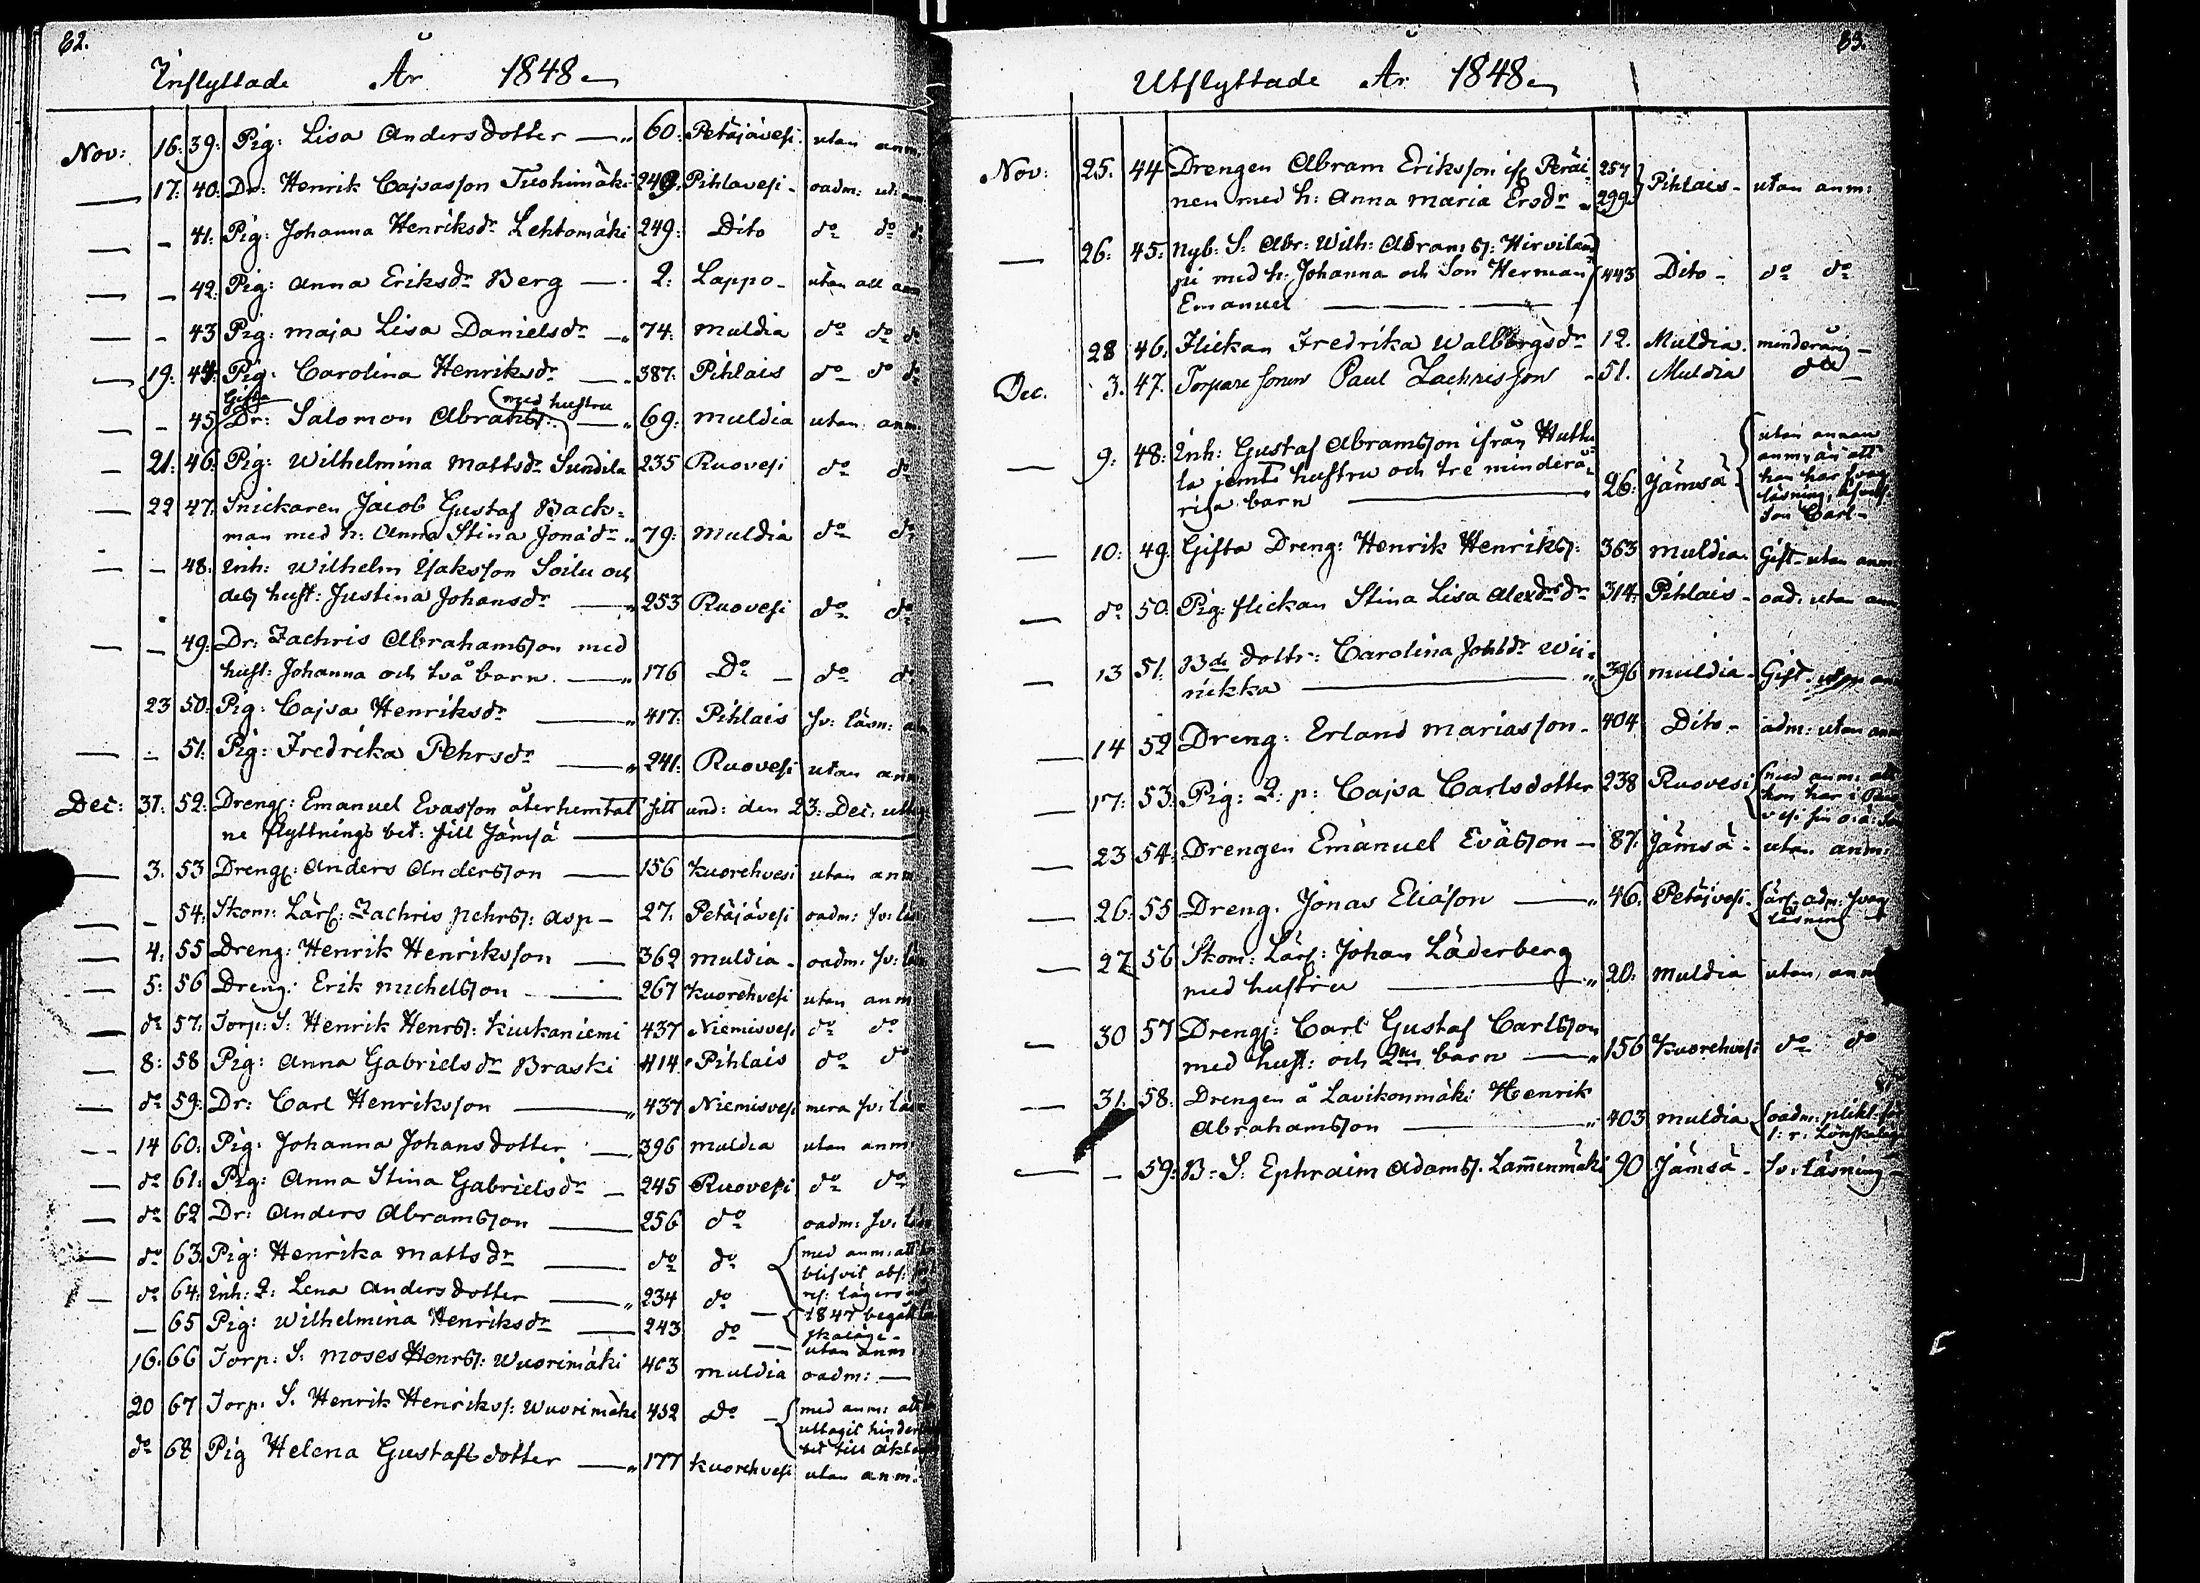 62.
Inflyttade År 1848
Nov: 16. 39. Pig: Lisa Andersdotter 60. Petäjävesi. utan anm.
17. 40. Dr: Henrik Cajsasson Tuohimäki 249. Pihlavesi oadm: ut: anm
41. Pig: Johanna Henriksdr Lehtomäki 249. Dito do do do
42. Pig: Anna Eriksdr Berg 2. Lappo utan all anm
43 Pig: Maja Lisa Danielsdr 74. Muldia do do do
19. 44. Pig: Carolina Henriksdr 387. Pihlais do do do
Gifta med hustru
45 Dr: Salomon Abrahss: 69. Muldia utan anm
21. 46. Pig: Wilhelmina Mattsdr Sundila 235 Ruovesi do do
22 47. Snickaren Jacob Gustaf Back-
man med h: Anna Stina Jonadr 79. Muldia do do
48. Inh: Wilhelm Isaksson Soilu och
dess hust: Justina Johansdr 253 Ruovesi do do
49. Dr: Zachris Abrahamsson med
hust: Johanna och två barn 176 Do do do
23 50. Pig: Cajsa Henriksdr 417. Pihlais sv: läsn: anm
51. Pig: Fredrika Pehrsdr 241. Ruovesi utan anm:
Dec: 31. 52. Dreng: Emanuel Evasson återhemtat sitt und: den 23. Dec. uttag
ne flyttnings bet: till Jämsä
3. 53 Dreng: Anders Andersson 156 Kuorehvesi utan anm
54. Skom: Lärl: Zachris Pehrss: Asp 27. Petäjävesi oadm: sv: läs
4. 55 Dreng: Henrik Henriksson 362 Muldia oadm: sv: läs
5. 56 Dreng: Erik Michelsson 267 Kuorehvesi utan anm
do 57. Torp: S: Henrik Henrss: Kiukaniemi 437 Niemisves. do do
8. 58 Pig: Anna Gabrielsdr Braski 414 Pihlais do do
do 59. Dr: Carl Henriksson 437 Niemisvesi mera sv: läs
14 60. Pig: Johanna Johansdotter 396 Muldia utan anm:
do 61. Pig: Anna Stina Gabrielsdr 245 Ruovesi do do
do 62 Dr: Anders Abramsson 256 do oadm: sv: läs
do 63. Pig: Henrika Mattsdr do do med anm: att
blifvit abs:
do 64. Inh: Lena Andersdotter 234 do lägers
65 Pig: Wilhelmina Henriksdr 243 do 1847 begått
skaläge
utan anm
16. 66 Torp: S: Moses Henrss: Wuorimäki 403 Muldia oadm:
20 67 Torp: S. Henrik Henrikss: Wuorimäki 432 do med anm: att
uttagit hinder
bet till äkten
do 68 Pig Helena Gustafsdotter 177 Kuorehvesi utan anm:
63.
Utflyttade År 1848
Nov: 25. 44 Drengen Abram Eriksson ifr Peräi- 257
nen med h: Anna Maria Ersdr 299 Pihlais utan anm:
26. 45. Nyb: S: Abr: Wilh: Abramss: Hirvilam
pi med h: Johanna och Son Herman 443 Dito do do
Emanuel
28 46. Flickan Fredrika Walborgsdr 12. Muldia. minderårig
Dec. 3. 47. Torpare sonen Paul Zachrisson 51. Muldia do
9. 48. Inh: Gustaf Abramsson ifrån Huttu
la jemte hustru och tre minderå-
riga barn 26. Jämsä utan annan
anm, än att
han har svag
läsning,
son Carl
10. 49. Gifta Dreng: Henrik Henrikss: 363 Muldia. Gift utan anm
do 50. Pig: flickan Stina Lisa Alexdrdr 314. Pihlais oad: utan anm
13 51. Bde dottr: Carolina Johldr Wii-
nikka 396 Muldia Gift utan anm
14 52 Dreng: Erland Mariasson 404 Dito adm: utan anm
17. 53. Pig: Q: p: Cajsa Carlsdotter 238 Ruovesi med anm: att
hon har i
23 54. Drengen Emanuel Evasson 87. Jämsä utan anm:
26. 55 Dreng. Jonas Eliasson 46. Petäjvesi adm: svag
läsning
27 56 Skom: Lärl: Johan Läderberg
med hustru 20. Muldia utan anm
30 57 Dreng: Carl Gustaf Carlsson
med hust: och 2ne barn 156 Kuorehvesi do do
31. 58. Drengen å Lavikonmäki Henrik
Abrahamsson 403 Muldia oadm: plikt
1: r: Lönskaläge
59. B: S: Ephraim Adamss. Lammenmäki 90 Jämsä sv: läsning